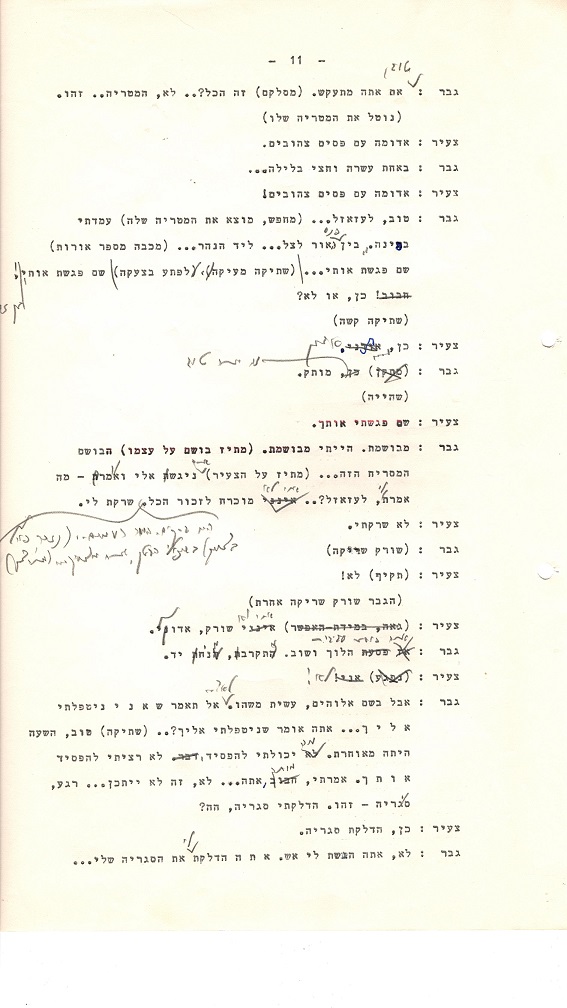 - 11 -
טוב,
גבר : את אתה מתעקש. (מסלקם) זה הכל?.. לא, המטריה.. זהו.
(נוטל את המטריה שלו)
צעיר : אדומה עם פסים צהובים.
גבר : באחת עשרה וחצי בלילה...
צעיר : אדומה עם פסים צהובים!
גבר : טוב, לעזאזל... (מחפש, מוצא את המטריה שלה) עמדתי
בפינה. בין אור לצל... ליד הנהר... (מכבה מספר אורות)
שם פגשת אותי... (שתיקה מעיקה, לפתע בצעקה) שם פגשת אותי,
חבוב! כן, או לא?
(שתיקה קשה)
צעיר : כן,
גבר : (מתקן) כן, מותק.
(שהייה)
צעיר : שם פגשתי אותך.
גבר : מבושמת. הייתי מבושמת. (מתיז בושם על עצמו) הבושם
המסריח הזה... (מתיז על הצעיר) ניגשת אלי ואמרת - מה
אמרת, לעזאזל?.. אינני מוכרח לזכור הכל. שרקת לי.
צעיר : לא שרקתי.
גבר : (שורק שריקה)
צעיר : (תקיף) לא!
(הגבר שורק שריקה אחרת)
צעיר : (גאה, במידת האפשר) אינני שורק, אדוני.
גבר : אז פסעת הלוך ושוב. התקרבת, הנחת יד.
צעיר : (נפגע) אני! לא!
גבר : אבל בשם אלוהים, עשית משהו. אל תאמר ש א נ י ניטפלתי
א ל י ך... אתה אומר שניטפלתי אליך?.. (שתיקה) טוב, השעה
היתה מאוחרת. לא יכולתי להפסיד דבר. לא רציתי להפסיד
א ו ת ך. אמרתי, חבוב, אתה... לא, זה לא ייתכן... רגע,
סגריה - זהו. הדלקתי סגריה, הה?
צעיר : כן, הדלקת סגריה.
גבר : לא, אתה הצעת לי אש. א ת ה הדלקת לי את הסגריה שלי...